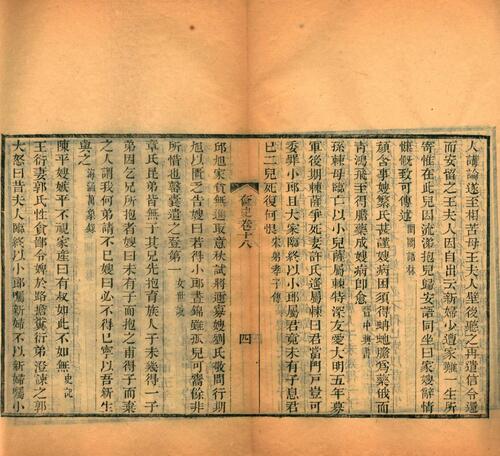 人講論遂至相苦母王夫人壁後聽之再遣信令還
而安留之王夫人因自出云新婦少遭家難一生所
寄惟在此兒因流涕抱兒歸安語同坐曰家嫂辭情
慷慨致可傳述
顏含事嫂繁氏甚謹嫂病困須得蚺蛇膽為藥俄而
青鴻飛至得膽藥成嫂病即愈
孫棘母臨亡以小兒薩屬棘特深友愛大明五年募
軍後期棘薩爭死妻許氏遙屬棘曰君當門戶豈可
委罪小郎且大家臨終以小郎屬君竟未有子息君
已二兒死復何恨 宋書孝子傳
奩史卷十八
四
邱旭家貧無進取意秋試將
旭以匱乏告嫂曰若得小郎書錦雖孤兒可鬻餘非
所惜也罄囊遣之登第 女世說
章氏昆弟皆無子其兄先抱育族人子未幾得一子
弟因乞兄所抱者嫂曰未有子而抱之甫得子而棄
之人謂我何弟請不已嫂曰必不得已寧以吾新生
與之
陳平嫂嫉平不視家產曰有叔如此不如無 史記
王衍妻郭氏性貪鄙令婢於路擔糞衍弟澄諫之郭
大怒曰昔夫人臨終以小郎囑新婦不以新婦囑小